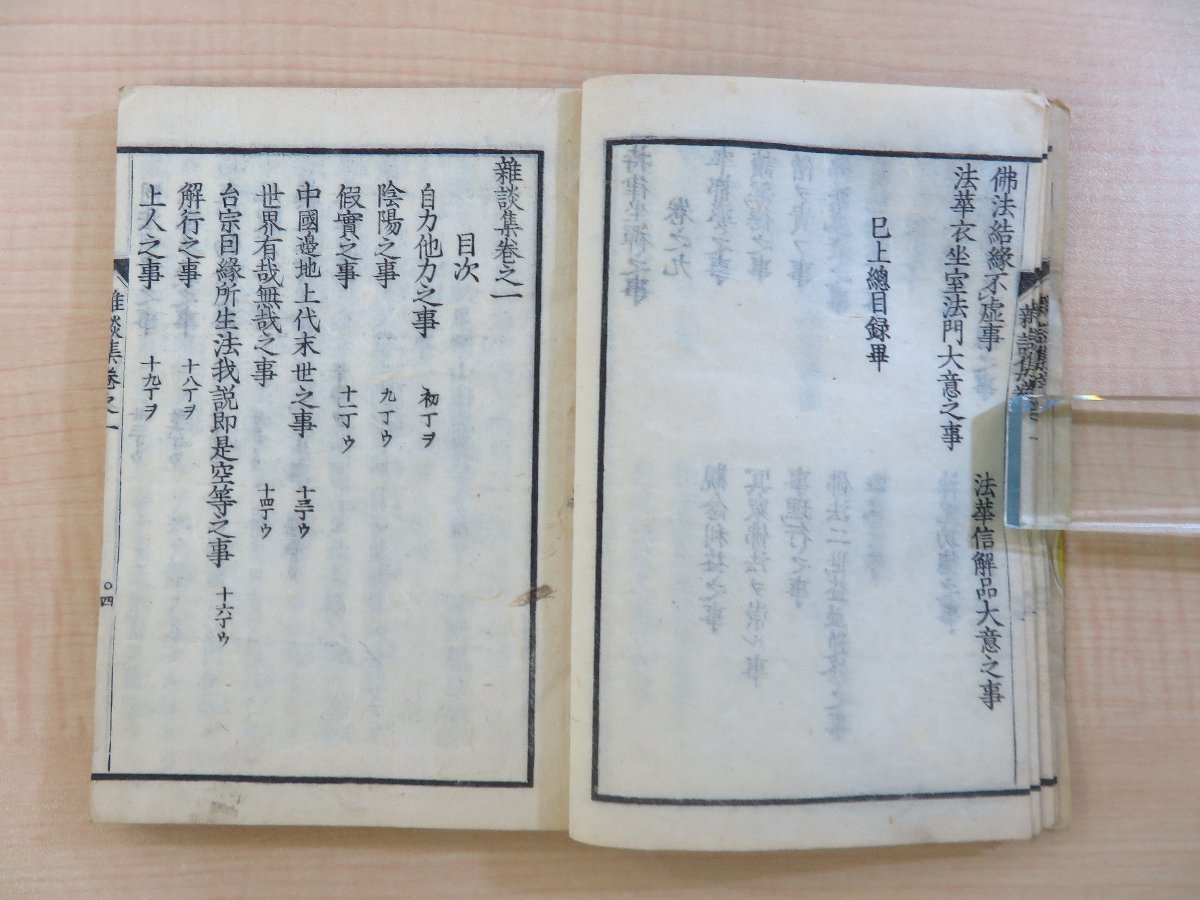 佛法結緣不虛事　法華信解品大意之事
法華衣坐室法門大意之事
巳上總目録畢
雜談集卷之一
目次
自力他力之事　初丁ヲ
陰陽之事　九丁ウ
假實之事　十一丁ウ
中國邉地上代末世之事　十三丁ウ
世界有哉無哉之事　十四丁ウ
台宗因緣所生法我說即是空等之事　十六丁ウ
解行之事　十八丁ヲ
上人之事　十九丁ヲ
雜談集卷之一
○四